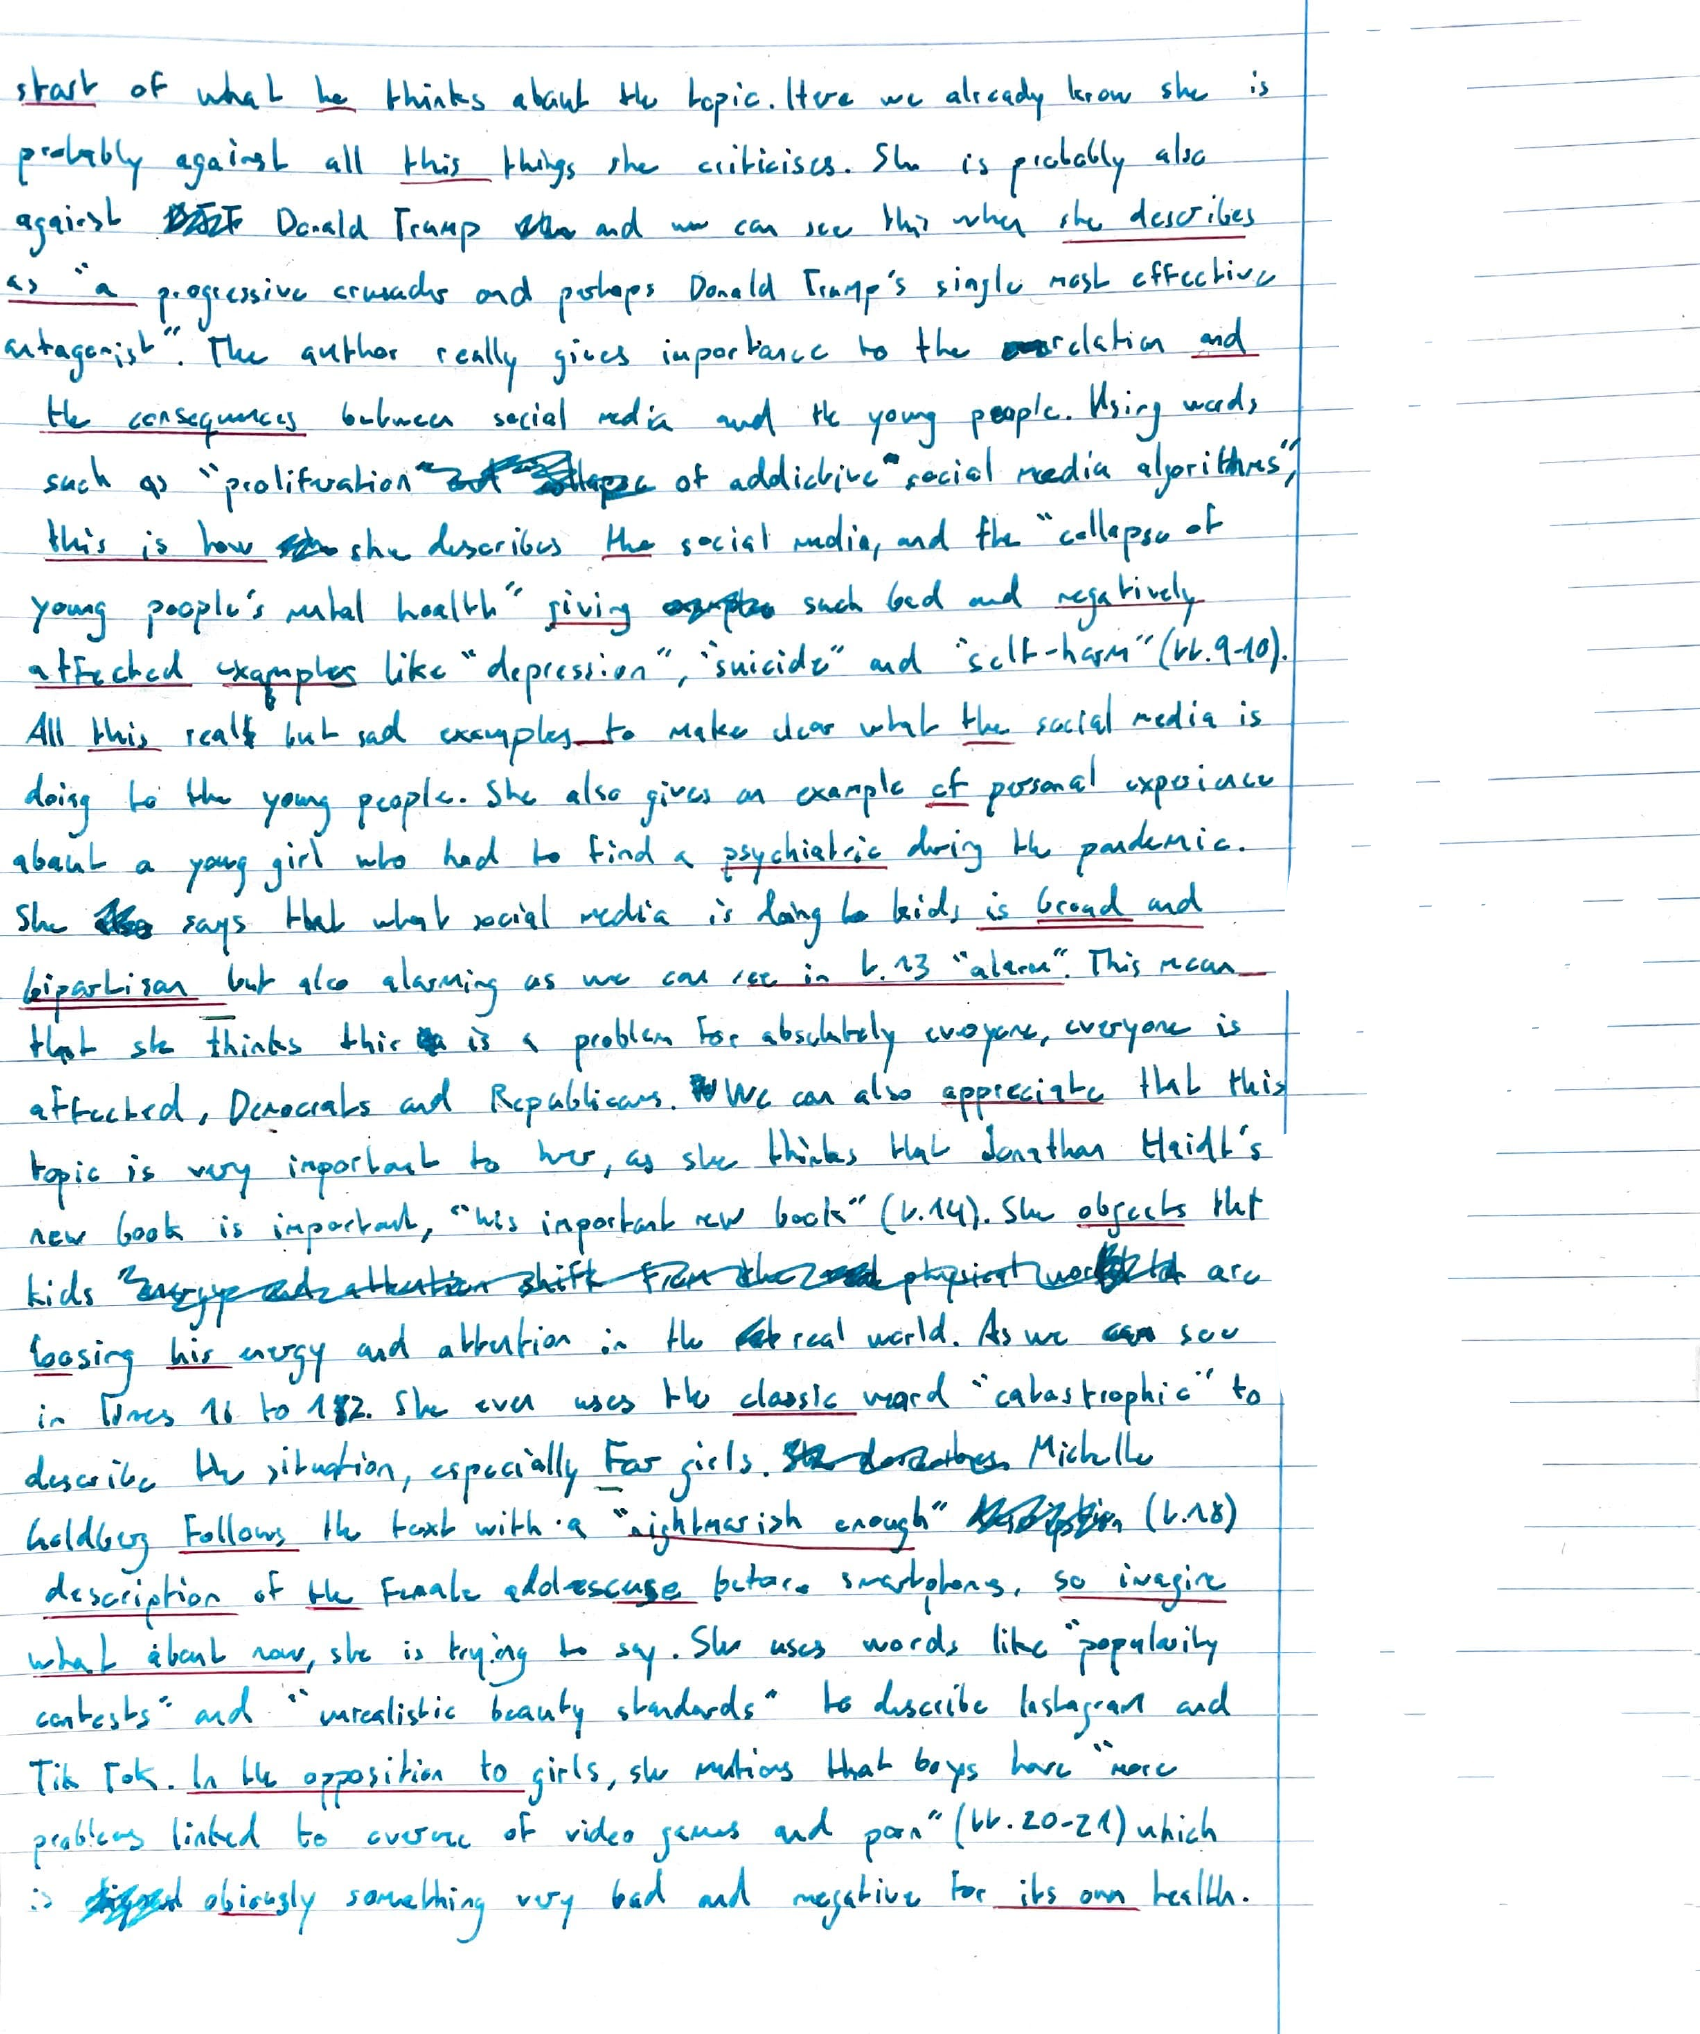 start of what he thinks about the topic. Here we already know she is
probably against all this things she criticises. She is probably also
against Donald Trump and we can see this when she describes
as "a progressive crusader and perhaps Donald Trump's single most effective
antagonist". The author really gives importance to the relation and
the consequences between social media and the young people. Using words
such as "proliferation of addictive" social media algorithms",
this is how she describes the social media, and the "collapse of
young people's mental health" giving such bad and negatively
affected examples like "depression", "suicide" and "self-harm" (ll.9-10).
All this real but sad examples to make clear what the social media is
doing to the young people. She also gives an example of personal experience
about a young girl who had to find a psychiatric during the pandemic.
She says that what social media is doing to kids is broad and
bipartisan but also alarming as we can see in l.13 "alarm". This mean
that she thinks this is a problem for absolutely everyone, everyone is
affected, Democrats and Republicans. We can also appreciate that this
topic is very important to her, as she thinks that Jonathan Haidt's
new book is important, "his important new book" (l.14). She objects that
kids are
loosing his energy and attention in the real world. As we see
in lines 16 to 17. She even uses the classic word "catastrophic" to
describe the situation, especially for girls. Michelle
Goldberg follows the text with a "nightmarish enough" (l.18)
description of the female adolescuse before smartphones, so imagine
what about now, she is trying to say. She uses words like "popularity
contests" and "unrealistic beauty standards" to describe Instagram and
Tik Tok. In the opposition to girls, she mentions that boys have "more
problems linked to overuse of video games and porn" (ll.20-21) which
is obiously something very bad and megative for its own health.